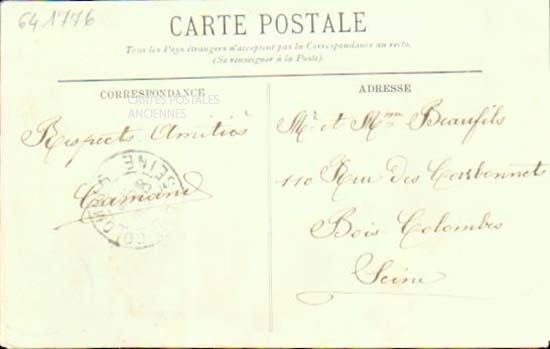 641776
CARTE POSTALE
Tous les Pays étrangers n'acceptent pas la Correspondance au recto.
(Se renseigner à la Poste).
CORRESPONDANCE
ADRESSE
CARTES POSTALES
ANCIENNES
Respects Amitiés
Mr et Mme Beaufils
110 Rue des Carbonnets
Bois Colombes
Seine
SEINE